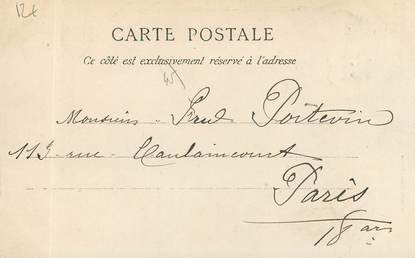 12€
CARTE POSTALE
Ce côté est exclusivement réservé à l'adresse
Monsieur Poitevin
113 rue Caulaincourt
Paris
18 arr